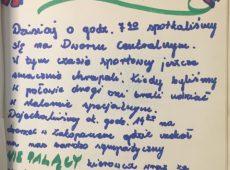 Dzisiaj o godz. 7⁵⁰ spotkaliśmy
się na Dworcu Centralnym.
W tym czasie sportowcy jeszcze
smacznie chrapali. Kiedy byliśmy
w połowie drogi oni brali udział
w slalomie specjalnym.
Dojechaliśmy ok. godz. 14
do Zakopanego gdzie
na nas bardzo sympatyczny
NIE PALĄCY kierowca